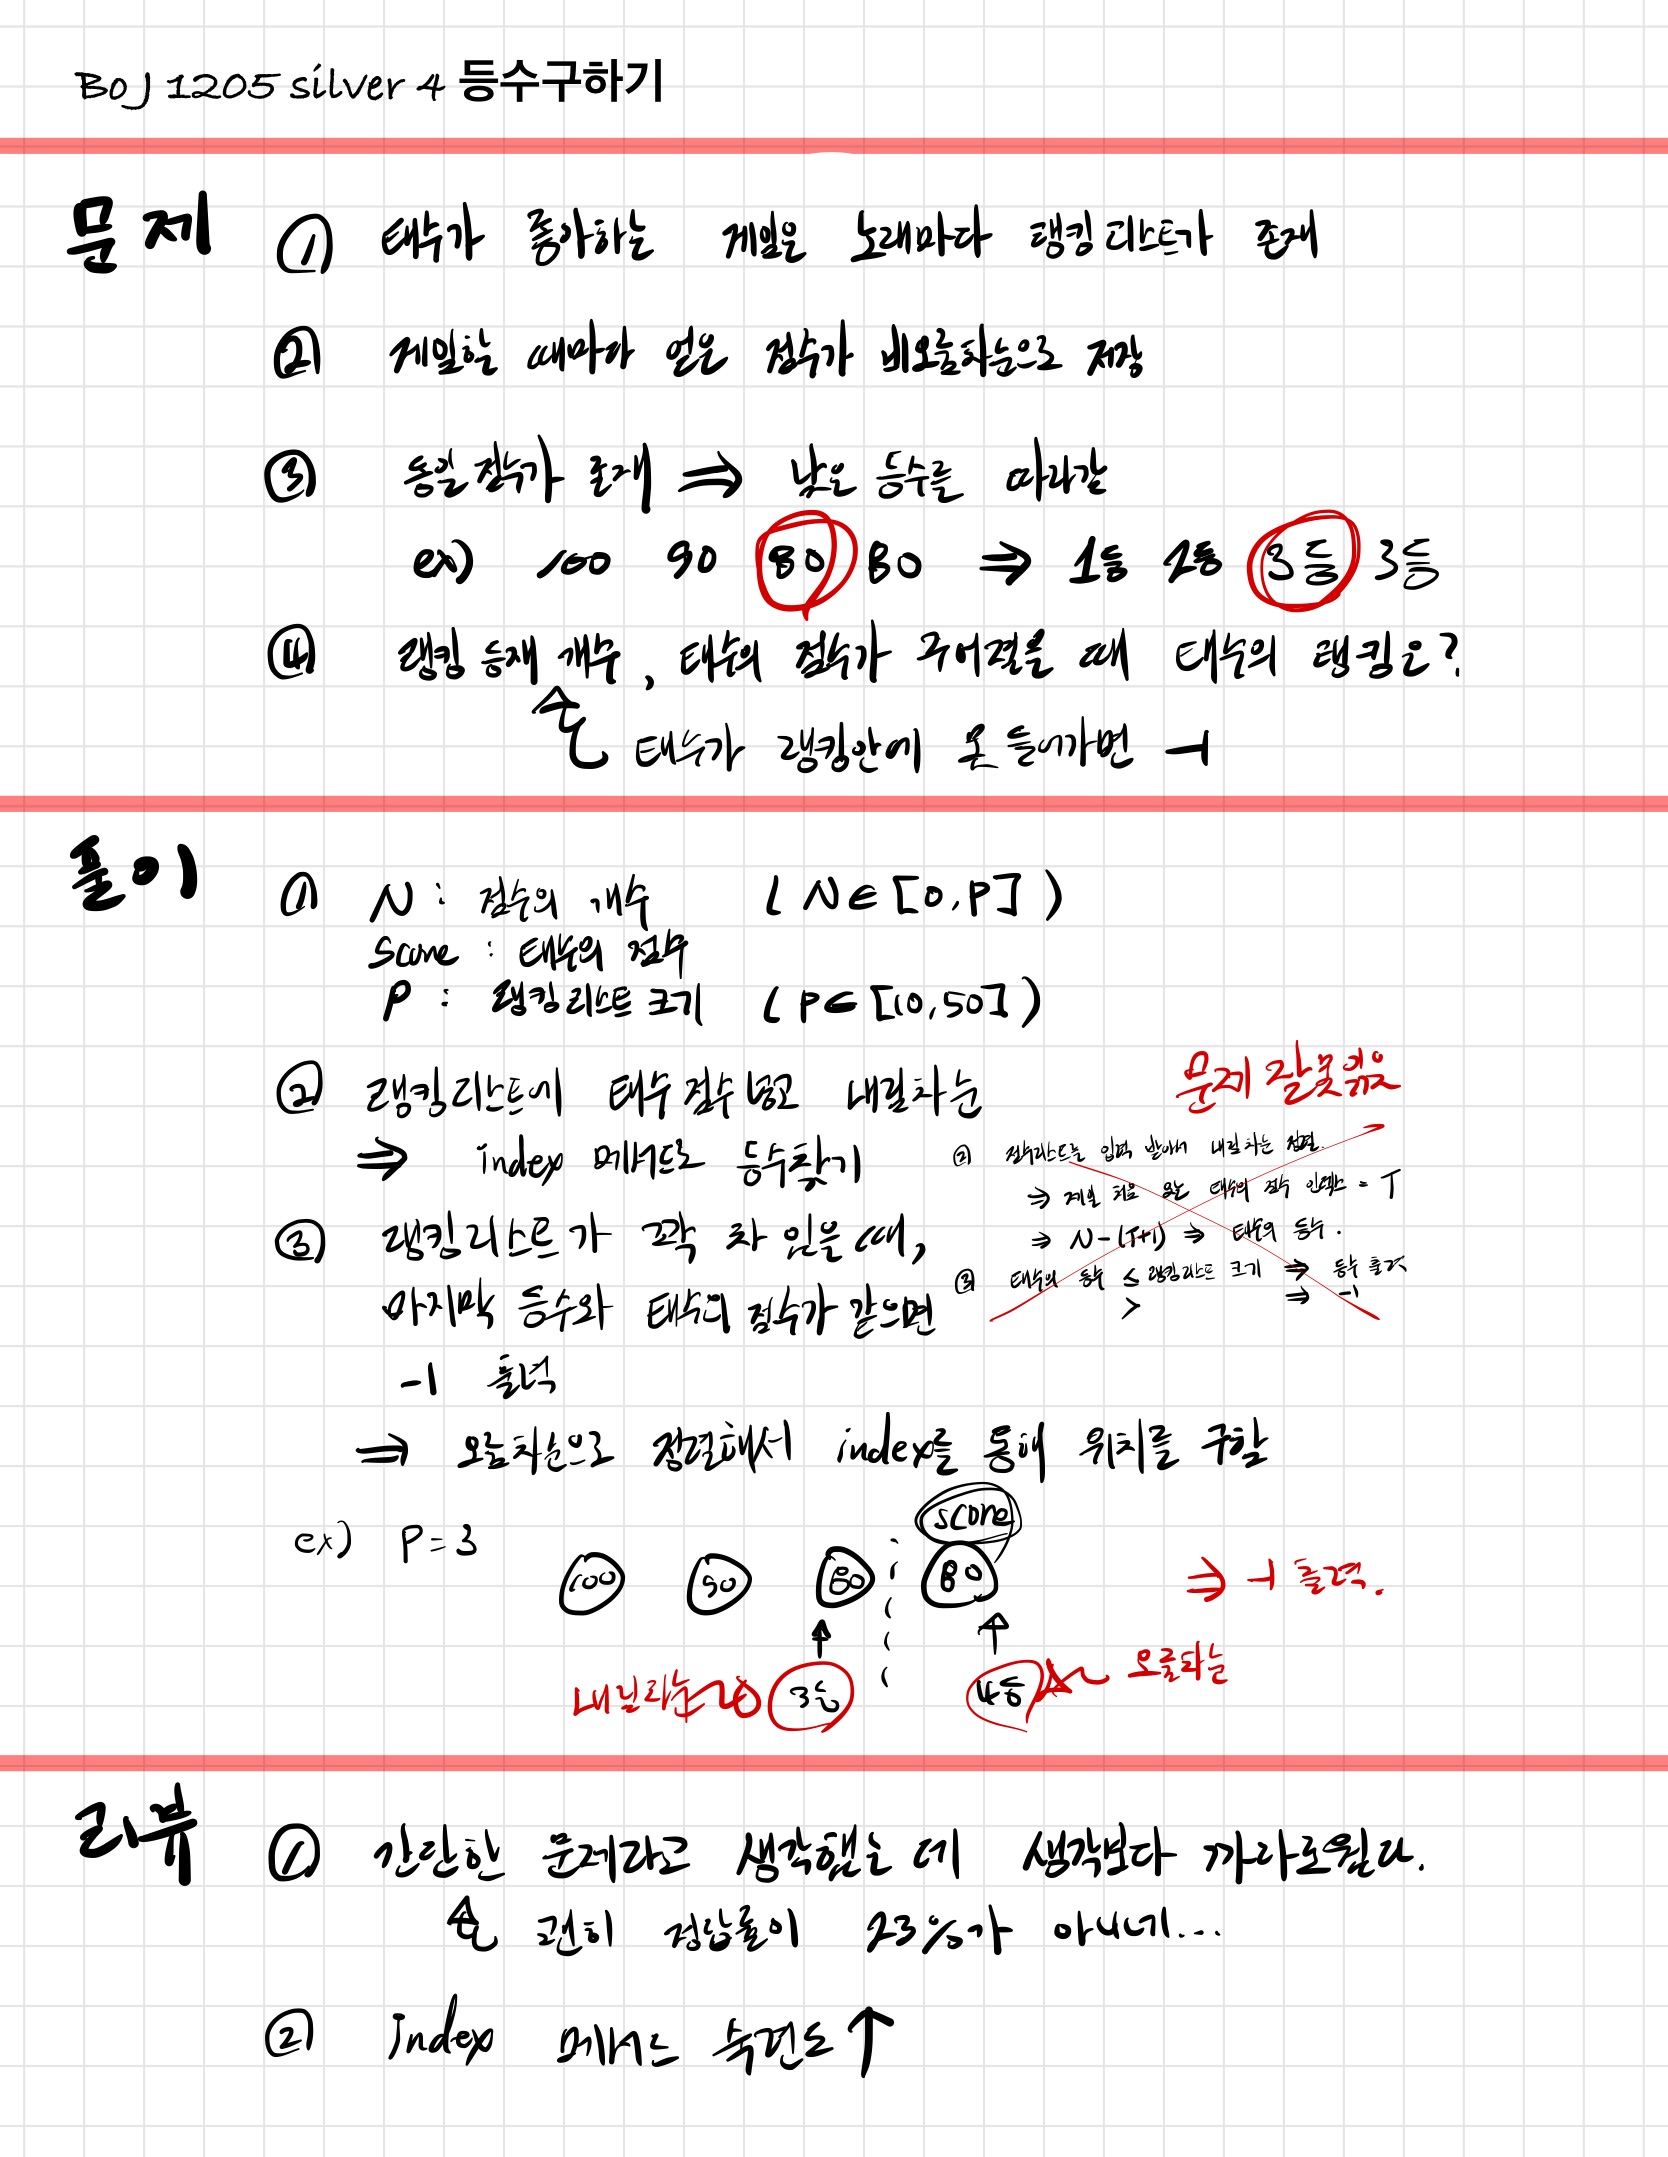 BOJ 1205 silver 4 등수구하기
문제
① 태수가 좋아하는 게임은 노래마다 랭킹리스트가 존재
② 게임할 때마다 얻은 점수가 비오름차순으로 저장
③ 동일 점수가 존재 ⇒ 낮은 등수를 따라감
ex) 100 90 80 80 ⇒ 1등 2등 3등 3등
④ 랭킹 등재 개수, 태수의 점수가 주어졌을 때 태수의 랭킹은?
태수가 랭킹안에 못 들어가면 -1
풀이
① N : 점수의 개수 ( N ∈ [0, P] )
score : 태수의 점수
P : 랭킹리스트 크기 ( P ∈ [10, 50] )
② 랭킹리스트에 태수 점수 넣고 내림차순
⇒ index 메서드로 등수찾기
③ 랭킹리스트가 꽉 차 있을 때,
마지막 등수와 태수의 점수가 같으면
-1 출력
⇒ 오름차순으로 정렬해서 index를 통해 위치를 구함
문제 잘못읽음
② 점수리스트를 입력 받아서 내림차순 정렬.
⇒ 제일 처음 오는 태수의 점수 인덱스 = T
⇒ N - (T+1) ⇒ 태수의 등수.
③ 태수의 등수 ≤ 랭킹리스트 크기 ⇒ 등수 출력
> ⇒ -1
ex) P = 3
score
100 90 80 80 ⇒ -1 출력.
내림차순 3등 4등 오름차순
리뷰
① 간단한 문제라고 생각했는데 생각보다 까다로웠다.
괜히 정답률이 23%가 아니네...
② index 메서드 숙련도 ↑